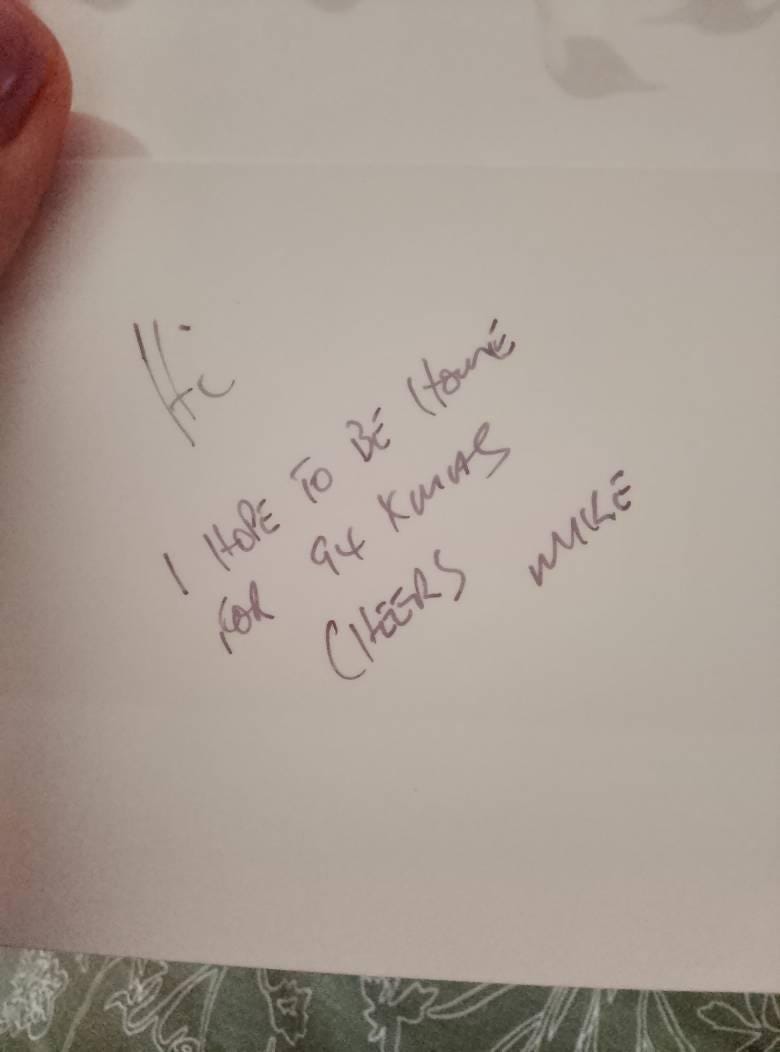 Hi
I HOPE TO BE HOME
FOR 94 XMAS
CHEERS MIKE